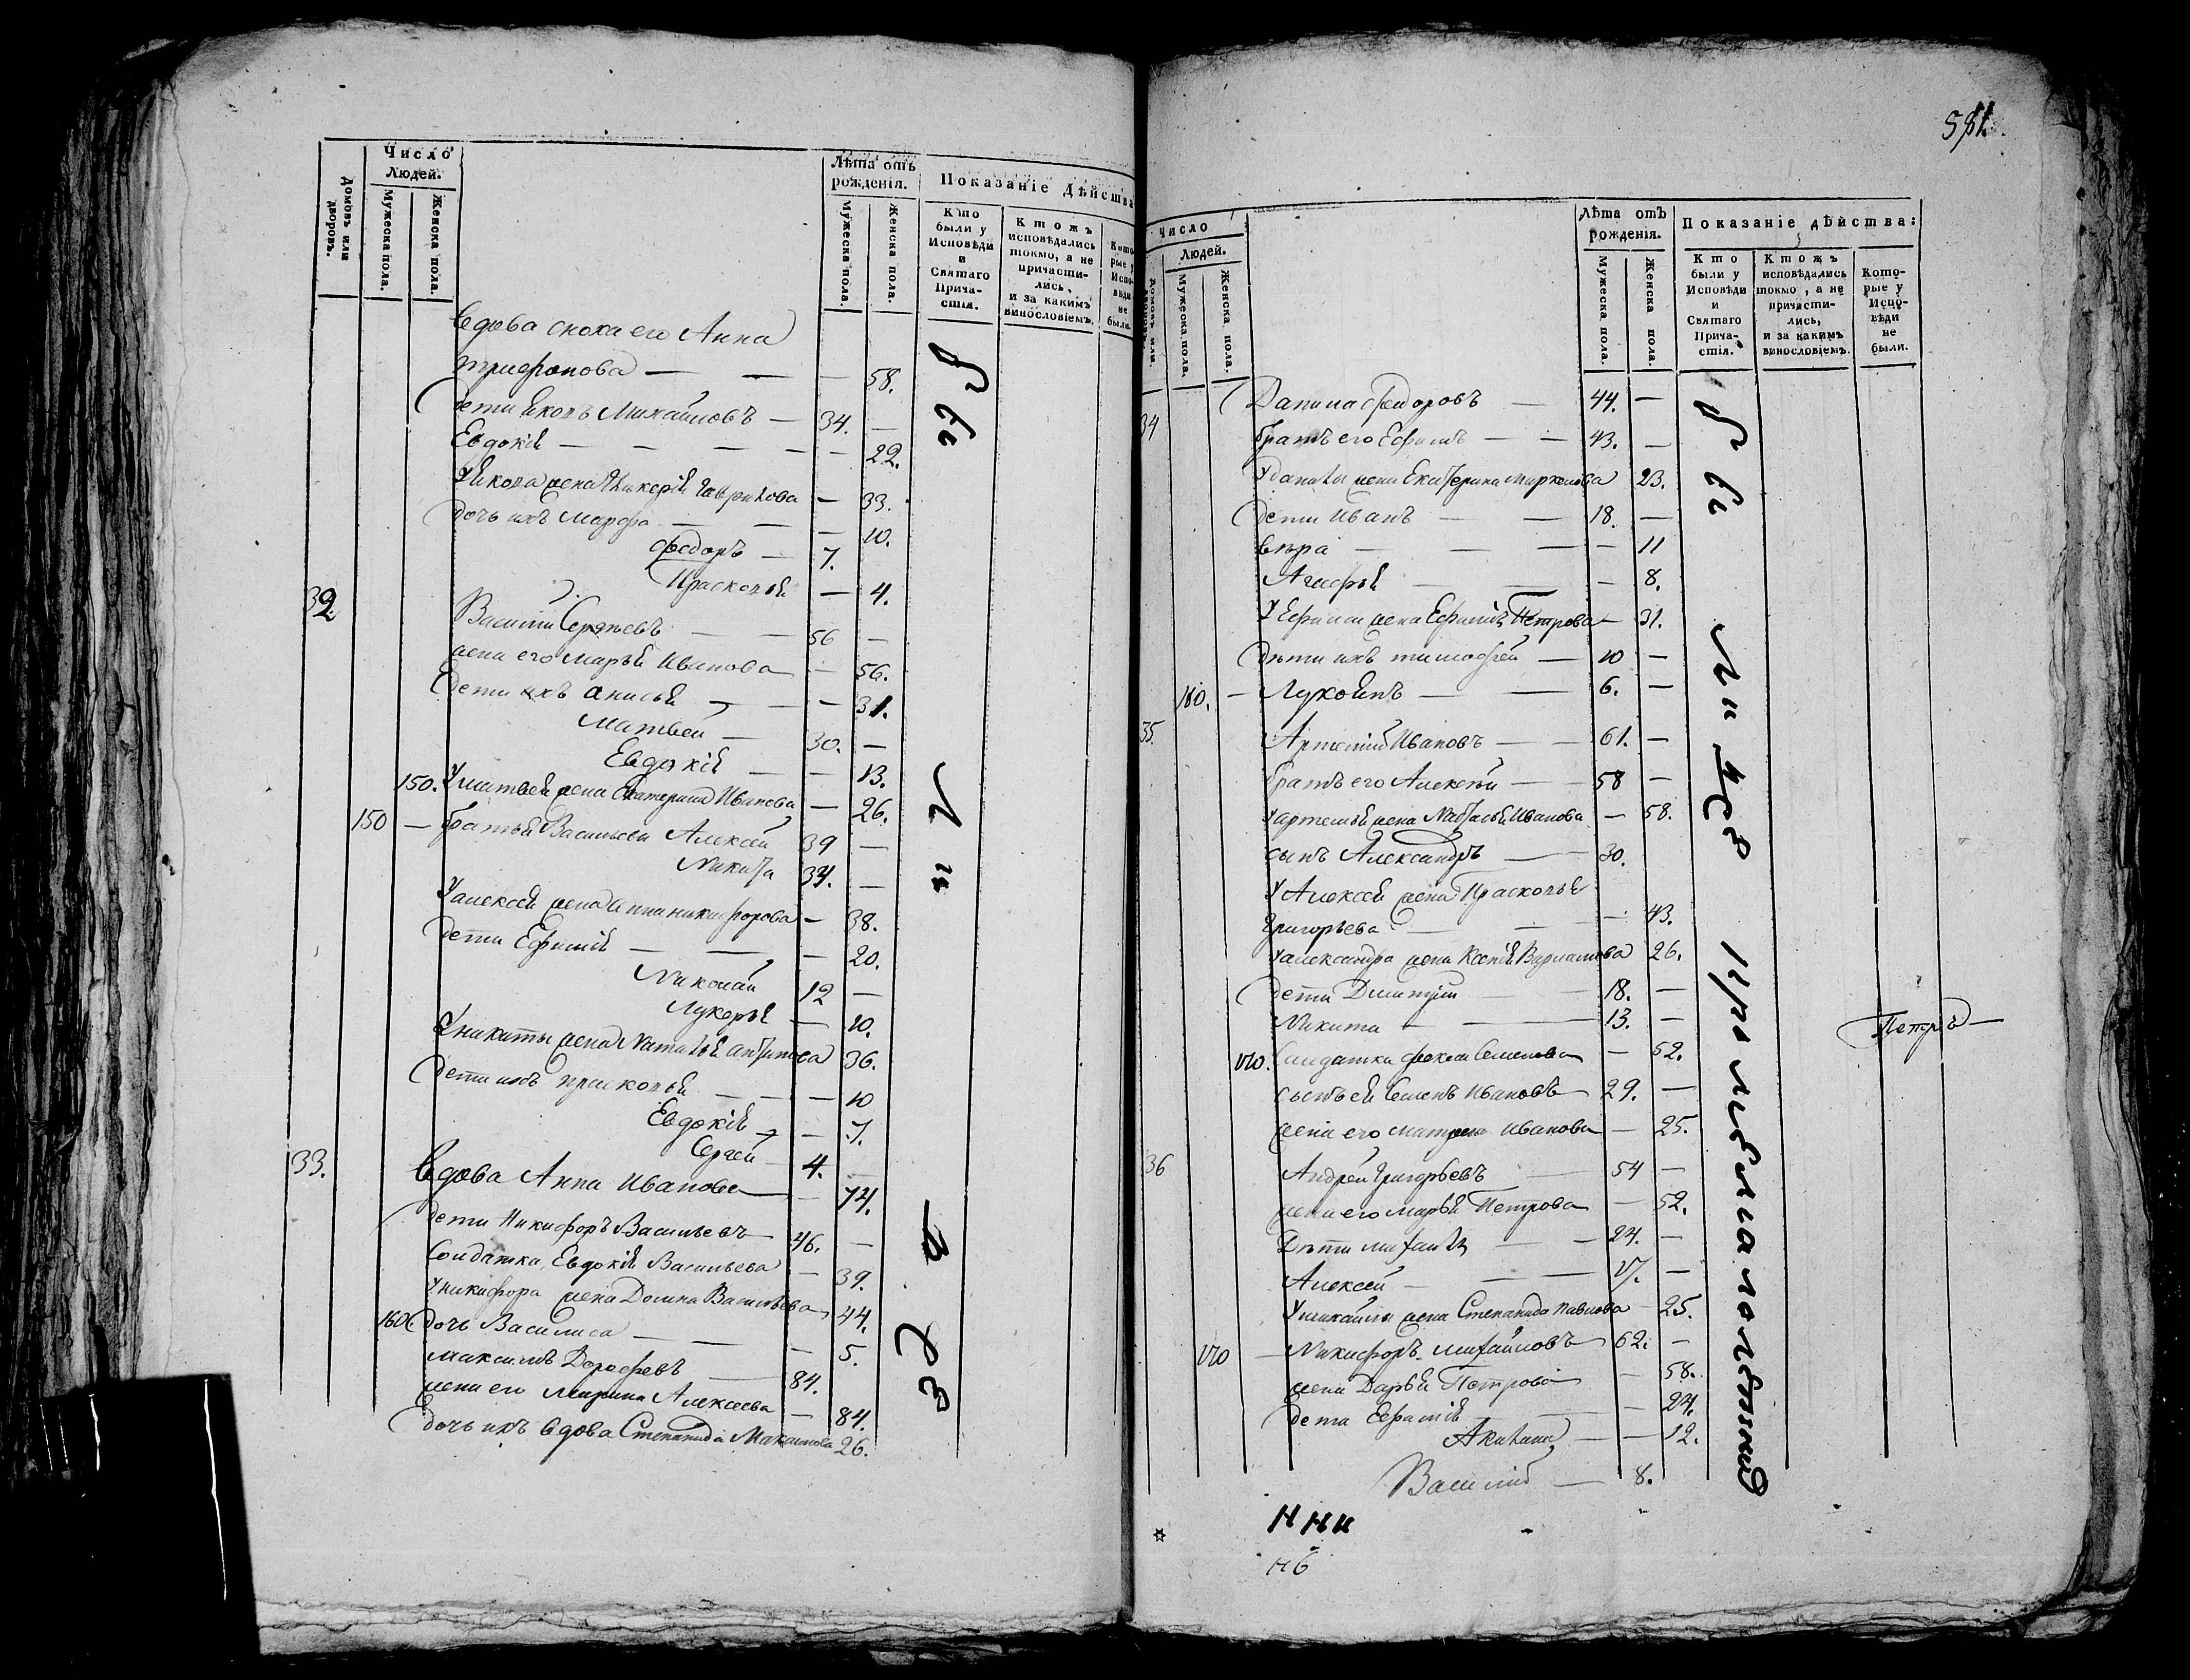 Число
Людей.
Домовъ или дворовъ.
Мужеска пола.
Женска пола.
Лѣта отъ рожденія.
Мужеска пола.
Женска пола.
Показаніе дѣйства
Кто были у Исповѣди и Святаго Причастія.
Ктожъ исповѣдались токмо, а не причастились, и за какимъ винословіемъ.
Которые у Исповѣди не были.
вдова сноха его Анна
Трифонова — — — 58.
дети Яковъ Михайловъ — 34. —
Евдокія — — — 22.
У Якова жена Гликерія Гаврилова — 33.
дочь ихъ Марфа — — — 10.
Федоръ — 7.
Прасковья — 4.
32 Василий Сергѣевъ — — 56 —
жена его Марья Иванова — 56.
дети ихъ Анисья — — 31.
Матвей — 30. —
Евдокія — — 13.
150. У Матвея жена Екатерина Иванова — 26.
150 — братья Васильевы Алексей 39 —
Никита 34. —
У Алексея жена Анна Никифорова — 38.
дети Ефимія — — — 20.
Николай 12 —
Лукерья — 10.
У Никиты жена Наталья Антипова 36.
дети ихъ Прасковья — — — 10
Евдокія — — 7.
Сергей — 4. —
33. вдова Анна Иванова — — 74.
дети Никифоръ Васильевъ 46. —
Солдатка Евдокія Васильева — 39.
У Никифора жена Домна Васильева 44.
160. дочь Василиса — — — 5.
Максимъ Дорофеевъ — 84.
жена его Марина Алексеева — 84.
дочь ихъ вдова Степанида Максимова 26.
581.
Число
Людей.
Домовъ или дворовъ.
Мужеска пола.
Женска пола.
Лѣта отъ рожденія.
Мужеска пола.
Женска пола.
Показаніе дѣйства:
Кто были у Исповѣди и Святаго Причастія.
Ктожъ исповѣдались токмо, а не причастились, и за какимъ винословіемъ.
Которые у Исповѣди не были.
34 Данила Федоровъ — 44. —
братъ его Ефимъ — — 43. —
У Данилы жена Екатерина Маркелова 23.
дети Иванъ — — 18. —
Вѣра — — — — 11
Агафья — — — 8.
У Ефима жена Ефимія Петрова — 31.
дѣти ихъ Тимофей — 10 —
160. — Лукоянъ — — 6. —
35. Артемий Ивановъ — — 61. —
братъ его Алексей — 58 —
У Артемья жена Наталья Иванова — 58.
сынъ Александръ — 30.
У Алексея жена Прасковья
Григорьева — — — 43.
У Александра жена Ксенія Варламова 26.
дети Дмитрий — 18. —
Никита — — 13. —
170. Солдатка Фекла Семенова — 52.
сынъ ея Семенъ Ивановъ — 29. —
жена его Матрена Иванова — 25.
Петръ —
36 Андрей Григорьевъ — 54 —
жена его Марья Петрова — 52.
Дѣти Михаила — — 24. —
Алексей — — — 17. —
У Михаилы жена Степанида Павлова — 25.
170 — Никифоръ Михайловъ — 62. —
жена Дарья Петрова — 58.
дети Ефимія — — 24.
Акилина — — 12.
Василий — 8.
были